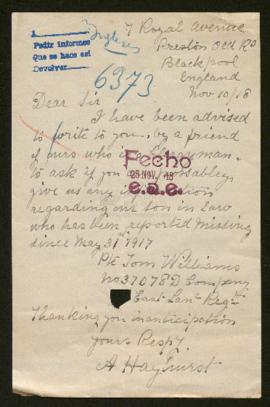 7 Royal Avenue
Preston Old Rd
Blackpool
England
Nov 10/18
Pedir informes
Que se hace así
Devolver
Ingleses
6373
Dear Sir
I have been advised
to write to you, by a friend
of ours who is
to ask if you
give us any information
regarding our son in law
who has been reported Missing
since May 31 1917
Fecho
25 NOV. 18
e.a.e.
Pte Tom Williams
No 37078 D Company
East Lanc Regt
Thanking you in anticipation
yours Respy
A Hayhurst